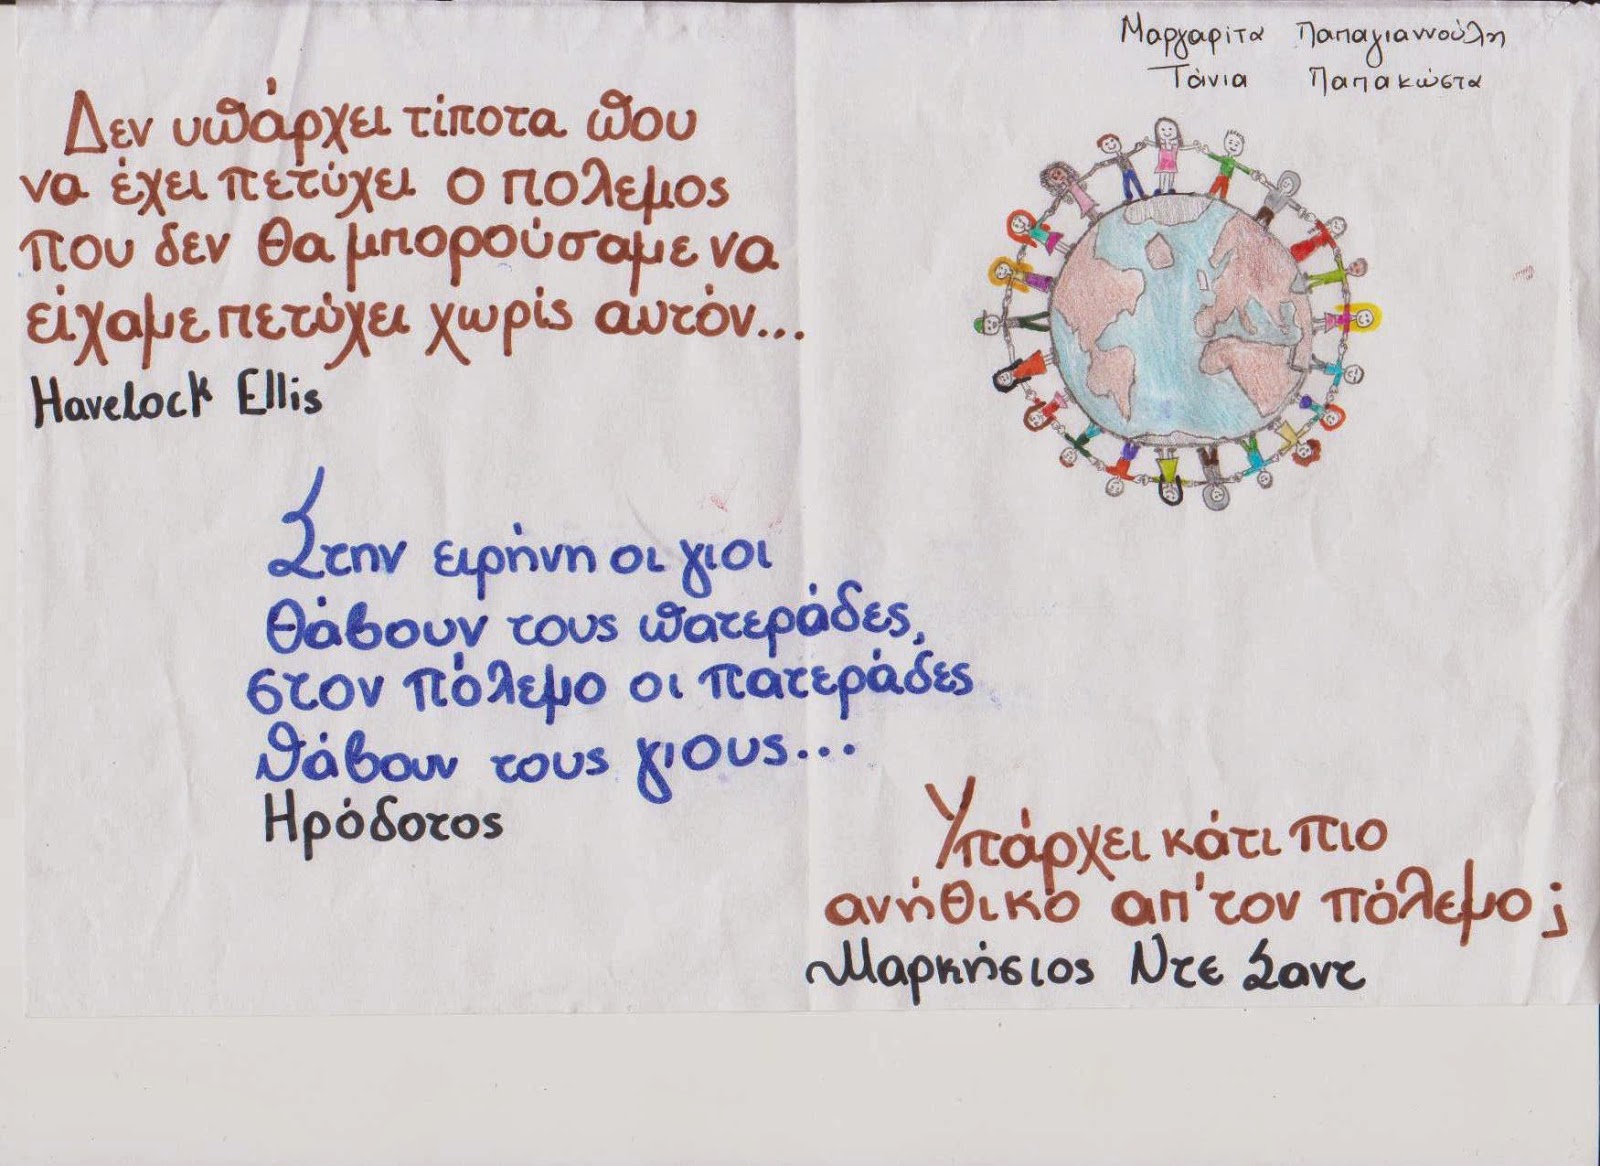 Μαργαρίτα Παπαγιαννούλη
Τάνια Παπακώστα
Δεν υπάρχει τίποτα που
να έχει πετύχει ο πολεμος
που δεν θα μπορούσαμε να
είχαμε πετύχει χωρίς αυτόν...
Havelock Ellis
Στην ειρήνη οι γιοι
θάβουν τους πατεράδες,
στον πόλεμο οι πατεράδες
θάβουν τους γιους...
Ηρόδοτος
Υπάρχει κάτι πιο
ανήθικο απ'τον πόλεμο;
Μαρκήσιος Ντε Σαντ